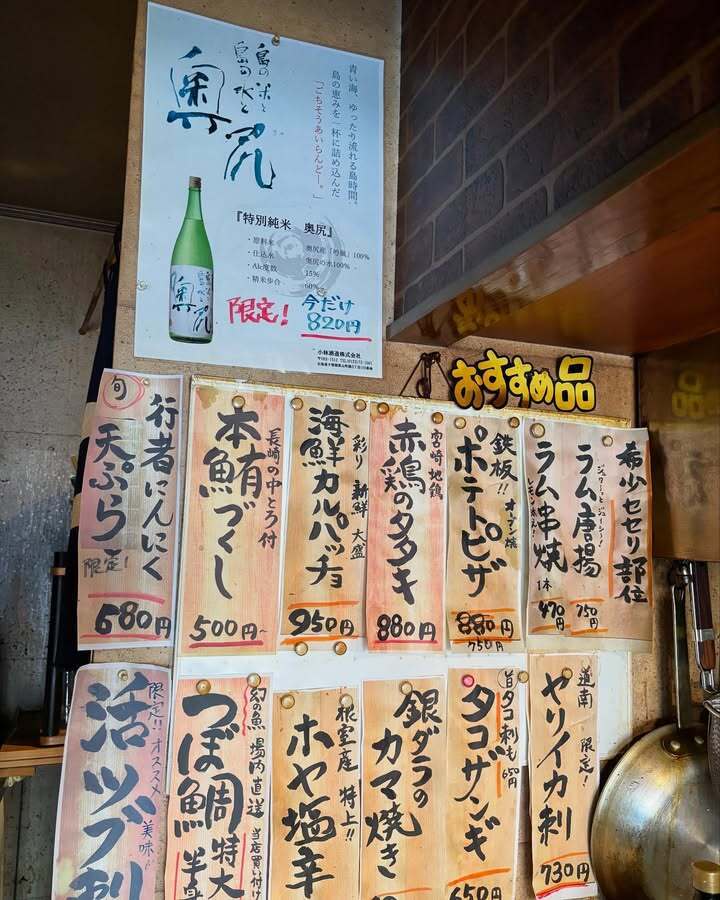 島の米と
島の水と
奥尻
青い海、ゆったり流れる島時間。
島の恵みを一杯に詰め込んだ
「ごちそうあいらんどー。」
『特別純米 奥尻』
・原料米 奥尻産「吟風」100%
・仕込水 奥尻の水100%
・Alc度数 15%
・精米歩合 60%
限定!
今だけ
820円
小林酒造株式会社
島の米と
島の水と
奥尻
おすすめ品
希少セセリ部位
ラム唐揚
ジューシーとジューシー!
750円
ラム串焼
1本
470円
鉄板!! オーブン焼
ポテトピザ
880円
750円
宮崎地鶏
赤鶏のタタキ
880円
彩り 新鮮 大盛
海鮮カルパッチョ
950円
長崎の中とろ付
本鮪づくし
500円~
旬
行者にんにく
天ぷら
限定!
680円
道南 限定!
ヤリイカ刺
730円
タコ刺も
タコザンギ
650円
銀ダラの
カマ焼き
根室産 特上!!
ホヤ塩辛
幻の魚 場内直送 当店買い付け
つぼ鯛 特大
限定!! オススメ 美味
活ツブ刺